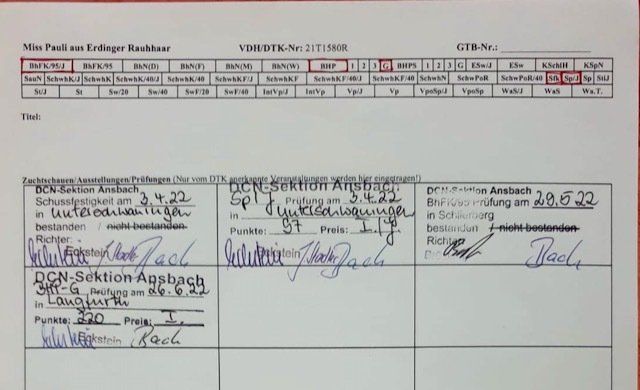 Miss Pauli aus Erdinger Rauhhaar VDH/DTK-Nr: 21T1580R GTB-Nr.:
BhFK/95/J BhFK/95 BhN(D) BhN(F) BhN(M) BhN(W) BHP 1 2 3 G BHPS 1 2 3 G ESw/J ESw KSchlH KSpN
SauN SchwhK/J SchwhK SchwhK/40/J SchwhK/40 SchwhKF/J SchwhKF SchwhKF/40/J SchwhKF/40 SchwhN SchwPoR SchwPoR/40 Sfk Sp/J Sp StiJ
St/J St Sw/20 Sw/40 SwF/20 SwF/40 IntVp/J IntVp Vp/J Vp VpoSp/J VpoSp WaS/J WaS Wa.T.
Titel:
Zuchtschauen/Ausstellungen/Prüfungen (Nur vom DTK anerkannte Veranstaltungen werden hier eingetragen!)
DCN-Sektion Ansbach
Schussfestigkeit am 3.4.22
in Unterschwaningen
bestanden / nicht bestanden
Richter:
Eckstein Bach
DCN-Sektion Ansbach
Sp/J Prüfung am 3.4.22
in Unterschwaningen
Punkte: 97 Preis: I./J.
Eckstein Bach
DCN-Sektion Ansbach
BhFK/95 Prüfung am 29.5.22
in
bestanden / nicht bestanden
Richter
Bach
DCN-Sektion Ansbach
BHP-G Prüfung am 26.6.22
in Langfurth
Punkte: 220 Preis: I.
Eckstein Bach